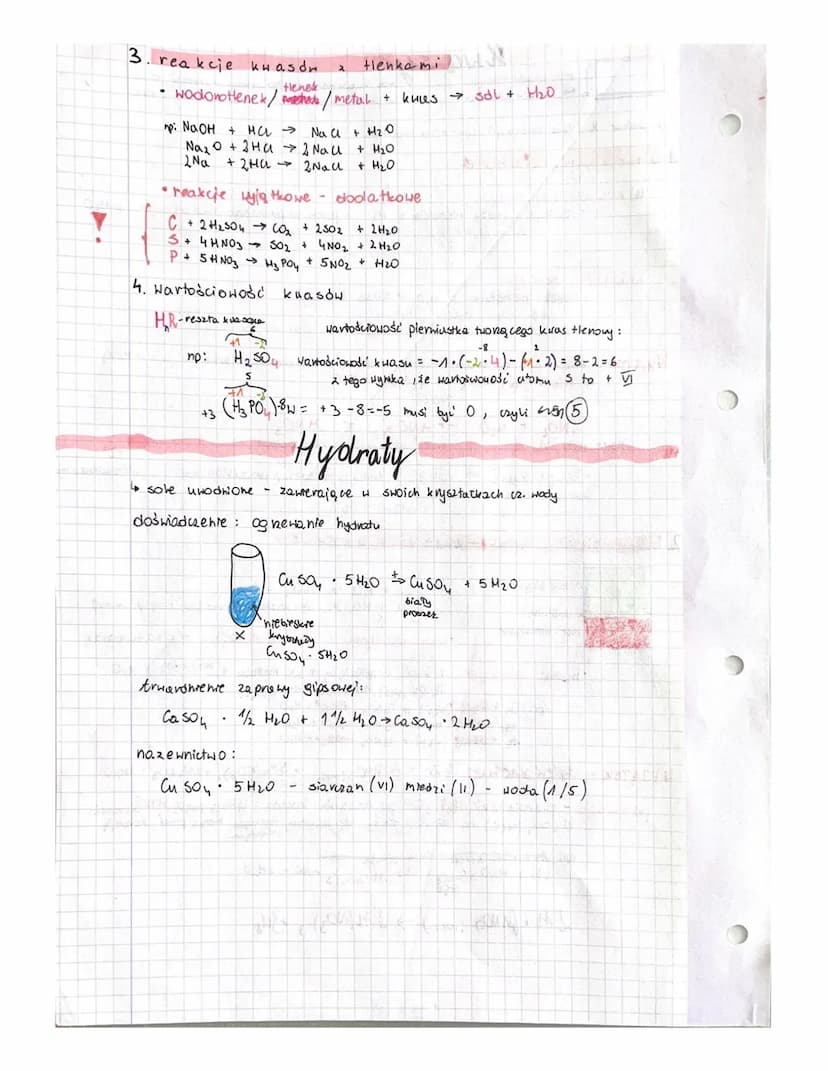 3. reakcje kwasów z tlenkami
• wodorotlenek/ tlenek /metal + kwas → sól + H₂O
np: NaOH + HCl → NaCl + H₂O
Na₂O + 2HCl → 2NaCl + H₂O
2Na + 2HCl → 2NaCl + H₂O
• reakcje wyjątkowe - dodatkowe
! C + 2H₂SO₄ → CO₂ + 2SO₂ + 2H₂O
S + 4HNO₃ → SO₂ + 4NO₂ + 2H₂O
P + 5HNO₃ → H₃PO₄ + 5NO₂ + H₂O
4. wartościowość kwasów
HₙR - reszta kwasowa
wartościowość pierwiastka tworzącego kwas tlenowy:
6
+1 -2
-8 2
np: H₂SO₄ wartościowość kwasu = -1·(-2·4)-(1·2) = 8-2=6
z tego wynika, że wartościowość atomu S to + VI
5
+1 -2
+3 (H₃PO₄)-8 = +3 -8=-5 musi być 0, czyli 5
Hydraty
↳ sole uwodnione - zawierające w swoich kryształkach cz. wody
doświadczenie: ogrzewanie hydratu
CuSO₄ · 5H₂O → CuSO₄ + 5H₂O
biały
proszek
niebieskie
kryształy
x CuSO₄ · 5H₂O
twardnienie zaprawy gipsowej:
CaSO₄ · 1/2 H₂O + 1 1/2 H₂O → CaSO₄ · 2H₂O
nazewnictwo:
CuSO₄ · 5H₂O - siarczan (VI) miedzi (II) - woda (1/5)